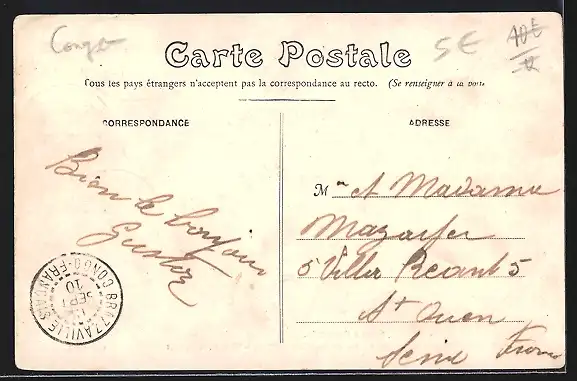 Congo
5€
10€
Carte Postale
Tous les pays étrangers n'acceptent pas la correspondance au recto. (Se renseigner à la poste
CORRESPONDANCE
ADRESSE
Bien le bonjour
Gustor
BRAZZAVILLE CONGO-FRANÇAIS
SEPT
10
Mr et Madame
Mazarfer
5 Villa Béant 5
St Ouen
Seine France